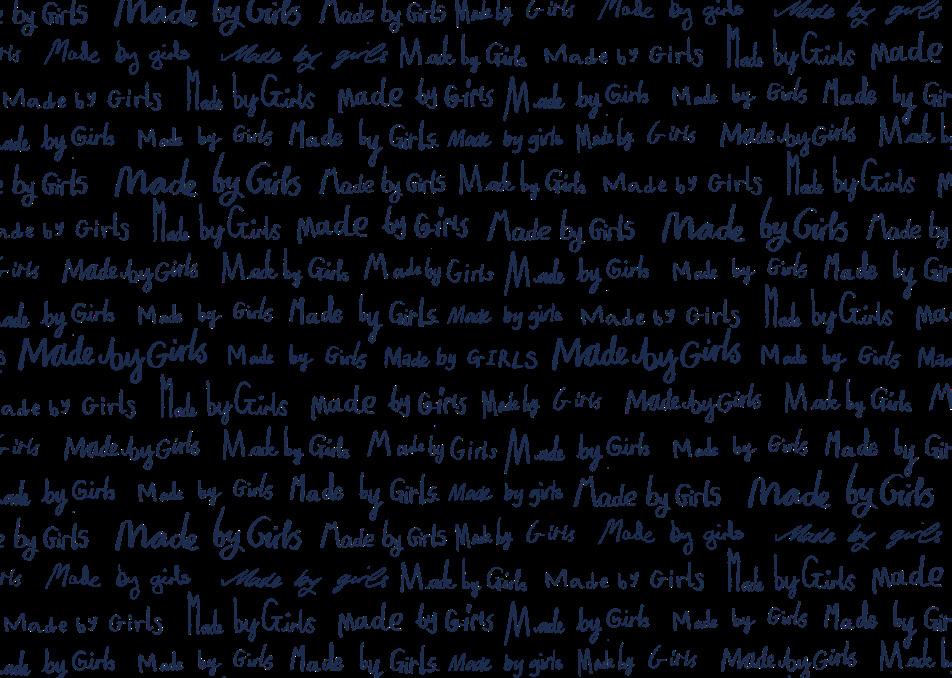 by Girls Made by Girls Made by Girls Made by Girls Made by girls Made by girls
Made by girls Made by girls Made by Girls Made by Girls Made by Girls Made
Made by Girls Made by Girls Made by Girls Made by Girls Made by Girls Made by
by Girls Made by Girls Made by Girls Made by girls Made by Girls Made by Girls Made
by Girls Made by Girls Made by Girls Made by Girls Made by Girls Made by Girls
by Girls Made by Girls Made by Girls Made by Girls Made by Girls Made by
Girls Made by Girls Made by Girls Made by Girls Made by Girls Made by Girls Made by
by Girls Made by Girls Made by Girls Made by girls Made by Girls Made by Girls
Made by Girls Made by Girls Made by GIRLS Made by Girls Made by Girls
by Girls Made by Girls Made by Girls Made by Girls Made by Girls Made by Girls
Girls Made by Girls Made by Girls Made by Girls Made by Girls Made by Girls Made by
by Girls Made by Girls Made by Girls Made by girls Made by Girls Made by Girls
by Girls Made by Girls Made by Girls Made by Girls Made by girls Made by girls
Made by girls Made by girls Made by Girls Made by Girls Made by Girls Made
Made by Girls Made by Girls Made by Girls Made by Girls Made by Girls Made by
by Girls Made by Girls Made by Girls Made by girls Made by Girls Made by Girls Made